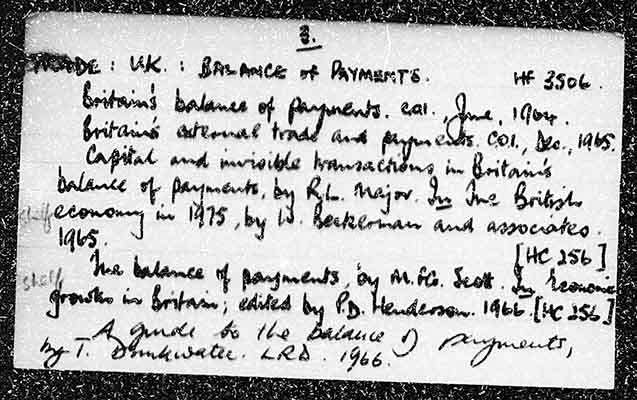 3.
TRADE : U.K. : BALANCE of PAYMENTS. HF 3506.
Britain's balance of payments. COI., June, 1964.
Britain's external trade and payments. COI., Dec., 1965.
Capital and invisible transactions in Britain's
balance of payments, by R.L. Major. In The British
shelf economy in 1975, by W. Beckerman and associates.
1965. [HC 256]
shelf The balance of payments, by M. FG. Scott. In Economic
growth in Britain; edited by P.D. Henderson. 1966. [HC 256]
A guide to the balance of payments,
by T. Drinkwater. LRD. 1966.